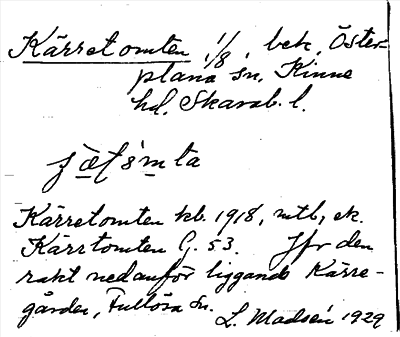 Kärretomten 1/8, bek, Öster-
plana sn, Kinne
hd. Skarab. l.
Kärretomten kb. 1918, mtb, ek.
Kärrtomten G. 53. Jfr den
rakt nedanför liggande Kärre-
gården, Fullösa sn.
L. Madsén 1929